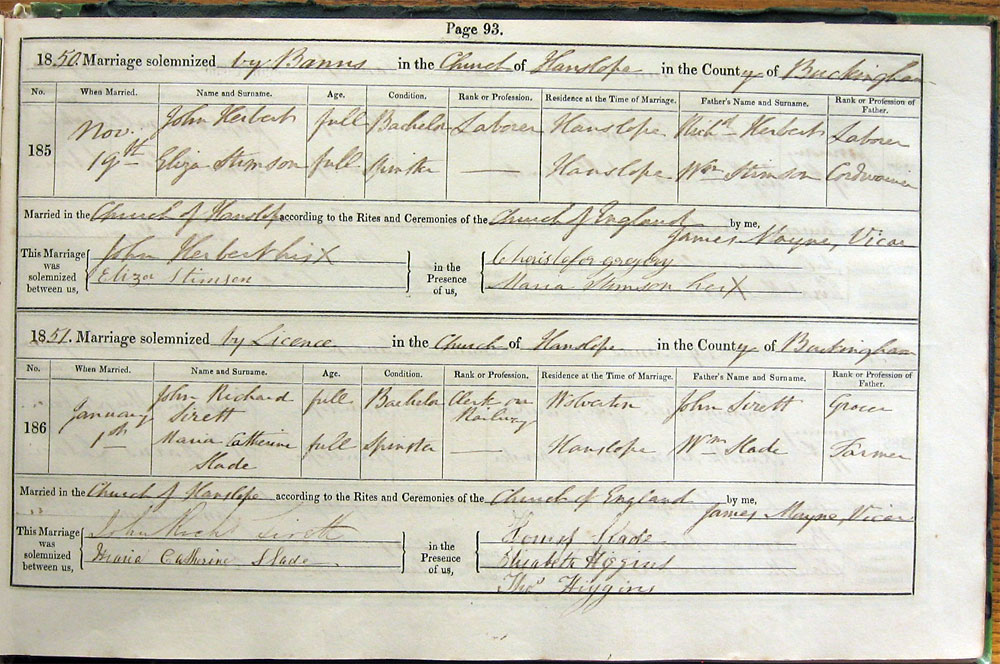 Page 93.
1850. Marriage solemnized by Banns in the Church of Hanslope in the County of Buckingham
No. When Married. Name and Surname. Age. Condition. Rank or Profession. Residence at the Time of Marriage. Father's Name and Surname. Rank or Profession of Father.
185 Nov. 19th John Herbert full Bachelor Laborer Hanslope Richd Herbert Laborer
Eliza Stimson full Spinster — Hanslope Wm Stimson Cordwainer
Married in the Church of Hanslope according to the Rites and Ceremonies of the Church of England by me,
James Mayne, Vicar
This Marriage was solemnized between us, John Herbert his X
Eliza Stimson
in the Presence of us, Christofer gregory
Maria Stimson her X
1851. Marriage solemnized by Licence in the Church of Hanslope in the County of Buckingham
No. When Married. Name and Surname. Age. Condition. Rank or Profession. Residence at the Time of Marriage. Father's Name and Surname. Rank or Profession of Father.
186 January 1th John Richard Sirett full Bachelor Clerk on Railway Wolverton John Sirett Grocer
Maria Catherine Slade full Spinster — Hanslope Wm Slade Farmer
Married in the Church of Hanslope according to the Rites and Ceremonies of the Church of England by me,
James Mayne, Vicar
This Marriage was solemnized between us, John Richd Sirett
Maria Catherine Slade
in the Presence of us, Slade
Elizabeth Higgins
Thos Higgins